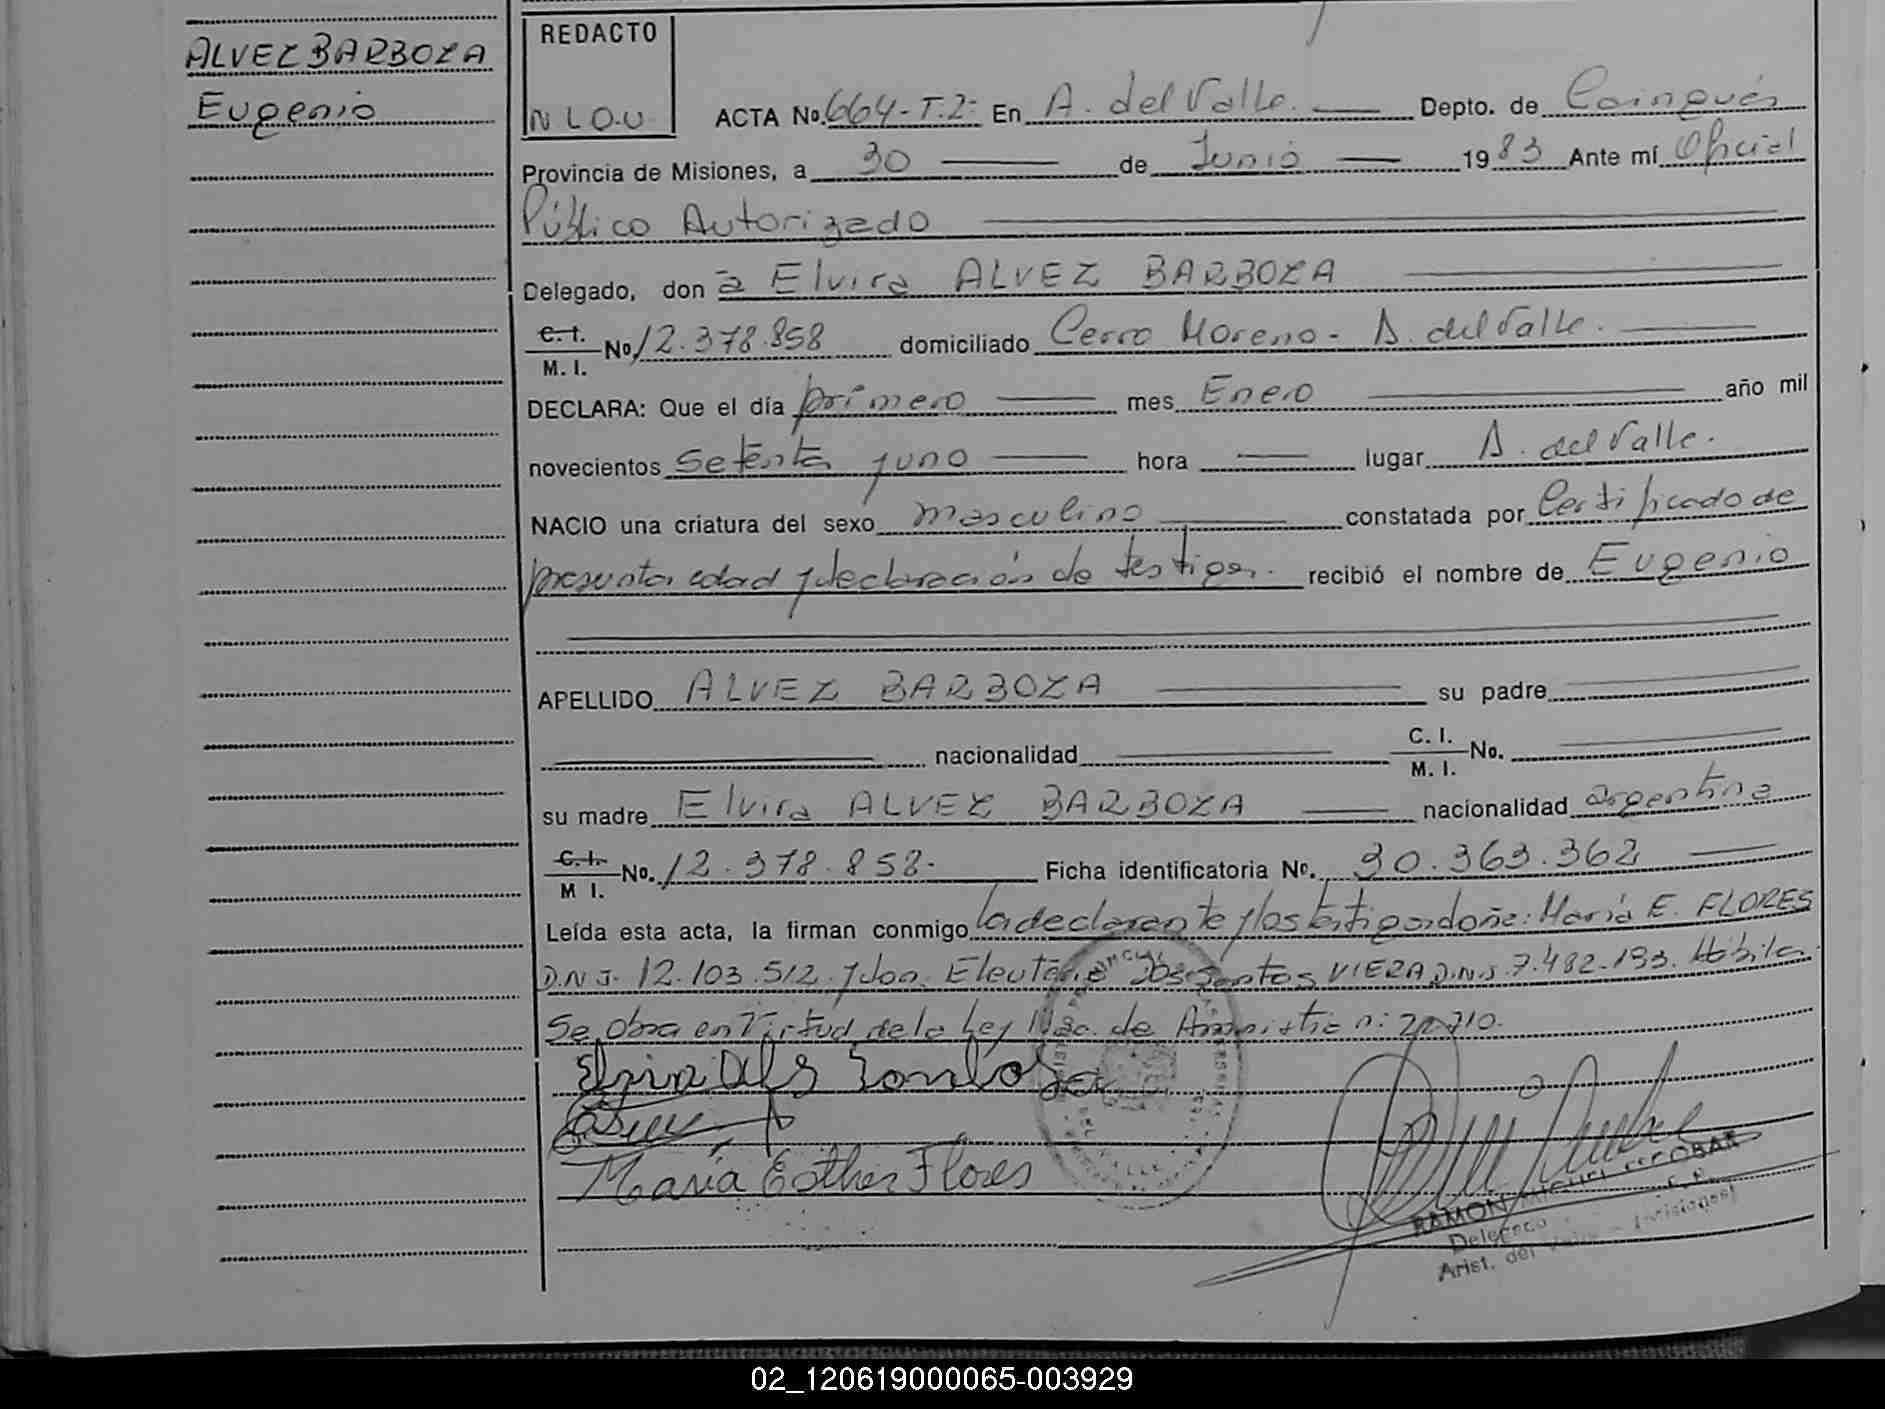 ALVEZ BARBOZA
Eugenio
REDACTO
N L O.U
ACTA No. 664-T.2- En A. del Valle. Depto. de Cainguás
Provincia de Misiones, a 30 de Junio 1983 Ante mí Oficial
Público Autorizado
Delegado, don a Elvira ALVEZ BARBOZA
C. I. M. I. No 12.378.858 domiciliado Cerro Moreno - A. del Valle.
DECLARA: Que el día primero mes Enero año mil
novecientos setenta y uno hora lugar A. del Valle.
NACIO una criatura del sexo masculino constatada por Certificado de
presunta edad y declaración de testigos. recibió el nombre de Eugenio
APELLIDO ALVEZ BARBOZA su padre
nacionalidad C. I. M. I. No.
su madre Elvira ALVEZ BARBOZA nacionalidad argentina
C. I. M I. No. 12.378.858- Ficha identificatoria No. 30.363.362
Leída esta acta, la firman conmigo la declarante y los testigos doña: María E. FLORES
D.N.J. 12.103.512. y don. Eleuterio Dos Santos VIERA D.N.J. 7.482.193.
Se obra en Virtud de la Ley Nac. de Amnistia n: 22.710.
María Esther Flores
RAMON MIGUEL ESCOBAR
Delegado
Arist. del Valle - (Misiones)
02_120619000065-003929